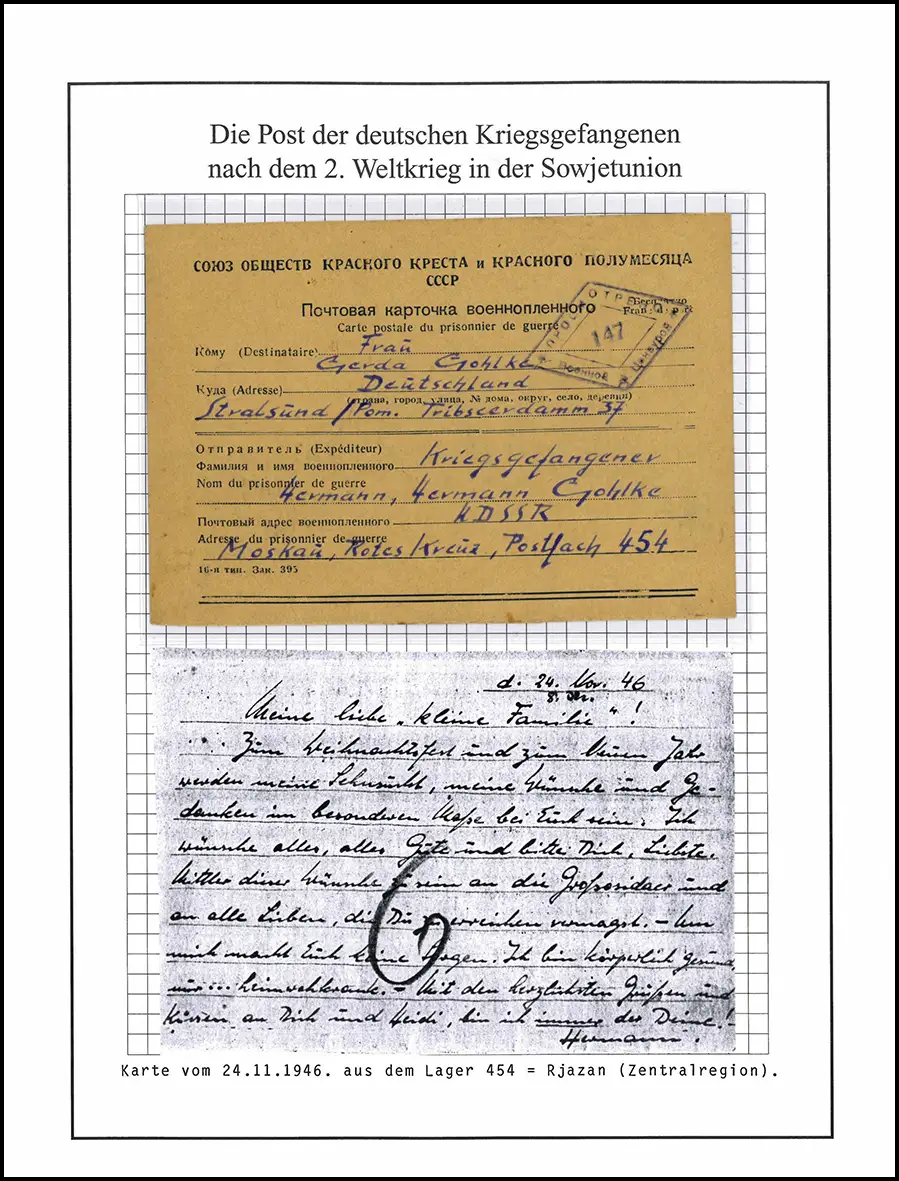 Die Post der deutschen Kriegsgefangenen
nach dem 2. Weltkrieg in der Sowjetunion
СОЮЗ ОБЩЕСТВ КРАСНОГО КРЕСТА и КРАСНОГО ПОЛУМЕСЯЦА
СССР
Почтовая карточка военнопленного
Carte postale du prisonnier de guerre
ПРОСМОТРЕНО
147
Военной Цензурой
Кому (Destinataire) Frau
Gerda Gohlke
Куда (Adresse) Deutschland
(страна, город, улица, № дома, округ, село, деревня)
Stralsund / Pom. Tribseerdamm 37
Отправитель (Expéditeur)
Фамилия и имя военнопленного Kriegsgefangener
Nom du prisonnier de guerre
Hermann, Hermann Gohlke
Почтовый адрес военнопленного UDSSR
Adresse du prisonnier de guerre
Moskau, Rotes Kreuz, Postfach 454
16-я тип. Зак. 395
d. 24. Nov. 46
Meine liebe „kleine Familie"!
Zum Weihnachtsfest und zum Neuen Jahr
werden meine Sehnsucht, meine Wünsche und Ge-
danken im besonderen Maße bei Euch sein. Ich
wünsche alles, alles Gute und bitte Dich, Liebste,
Mittler dieser Wünsche zu sein an die und
an alle Lieben, die Du zu erreichen vermagst. – Um
mich macht Euch keine Sorgen. Ich bin körperlich gesund,
nur... heimwehkrank. – Mit den herzlichsten Grüßen und
Küssen an Dich und Heidi, bin ich immer der Deine!
Hermann.
Karte vom 24.11.1946. aus dem Lager 454 = Rjazan (Zentralregion).